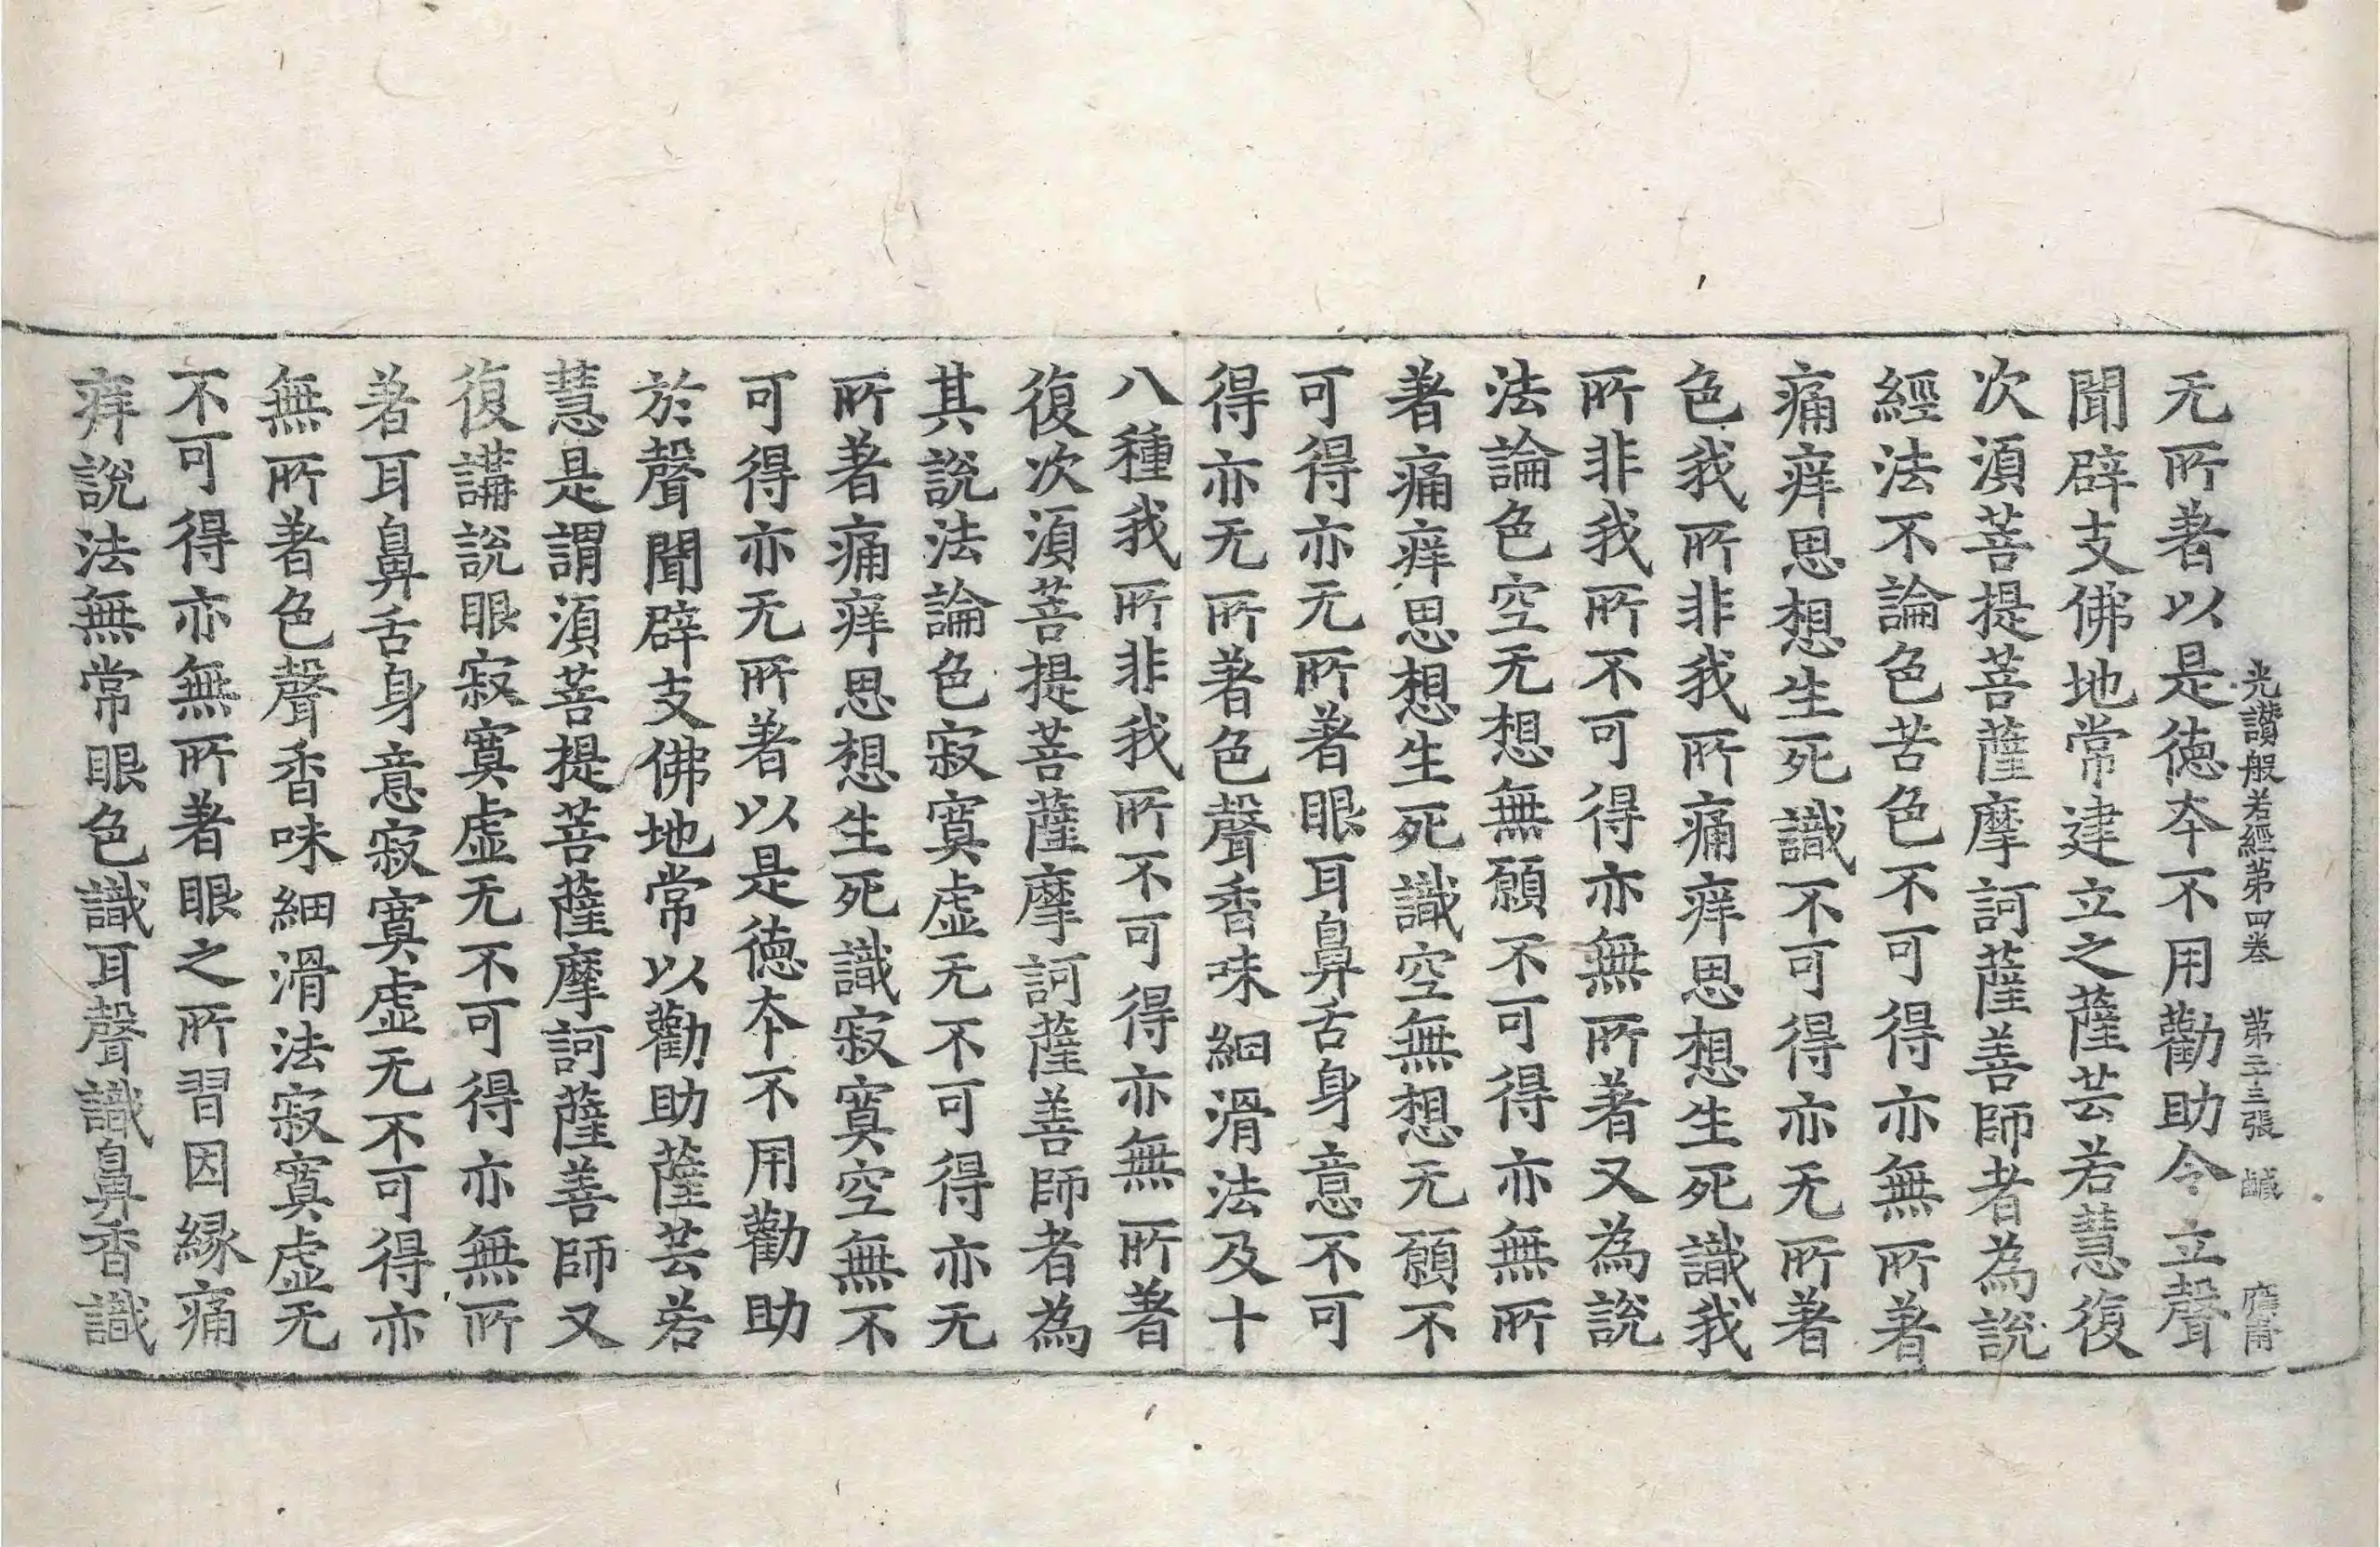 光讚般若經第四卷　第二十三張　鹹
无所著以是德本不用勸助令立聲
聞辟支佛地常建立之薩芸若慧復
次須菩提菩薩摩訶薩善師者為說
經法不論色苦色不可得亦無所著
痛痒思想生死識不可得亦无所著
色我所非我所痛痒思想生死識我
所非我所不可得亦無所著又為說
法論色空无想無願不可得亦無所
著痛痒思想生死識空無想无願不
可得亦无所著眼耳鼻舌身意不可
得亦无所著色聲香味細滑法及十
八種我所非我所不可得亦無所著
復次須菩提菩薩摩訶薩善師者為
其說法論色寂寞虛无不可得亦无
所著痛痒思想生死識寂寞空無不
可得亦无所著以是德本不用勸助
於聲聞辟支佛地常以勸助薩芸若
慧是謂須菩提菩薩摩訶薩善師又
復講說眼寂寞虛无不可得亦無所
著耳鼻舌身意寂寞虛无不可得亦
無所著色聲香味細滑法寂寞虛无
不可得亦無所著眼之所習因緣痛
痒說法無常眼色識耳聲識鼻香識